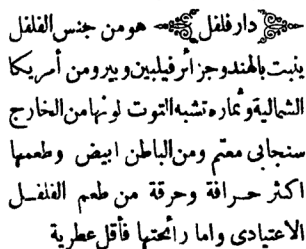 دار فلفل هو من جنس الفلفل
ينبت بالهند وجزائر فيلبين وبيرو من أمريكا
الشمالية وثماره تشبه التوت لونها من الخارج
سنجابى معتم ومن الباطن ابيض وطعمها
اكثر حرافة وحرقة من طعم الفلفل
الاعتيادى واما رائحتها فأقل عطرية